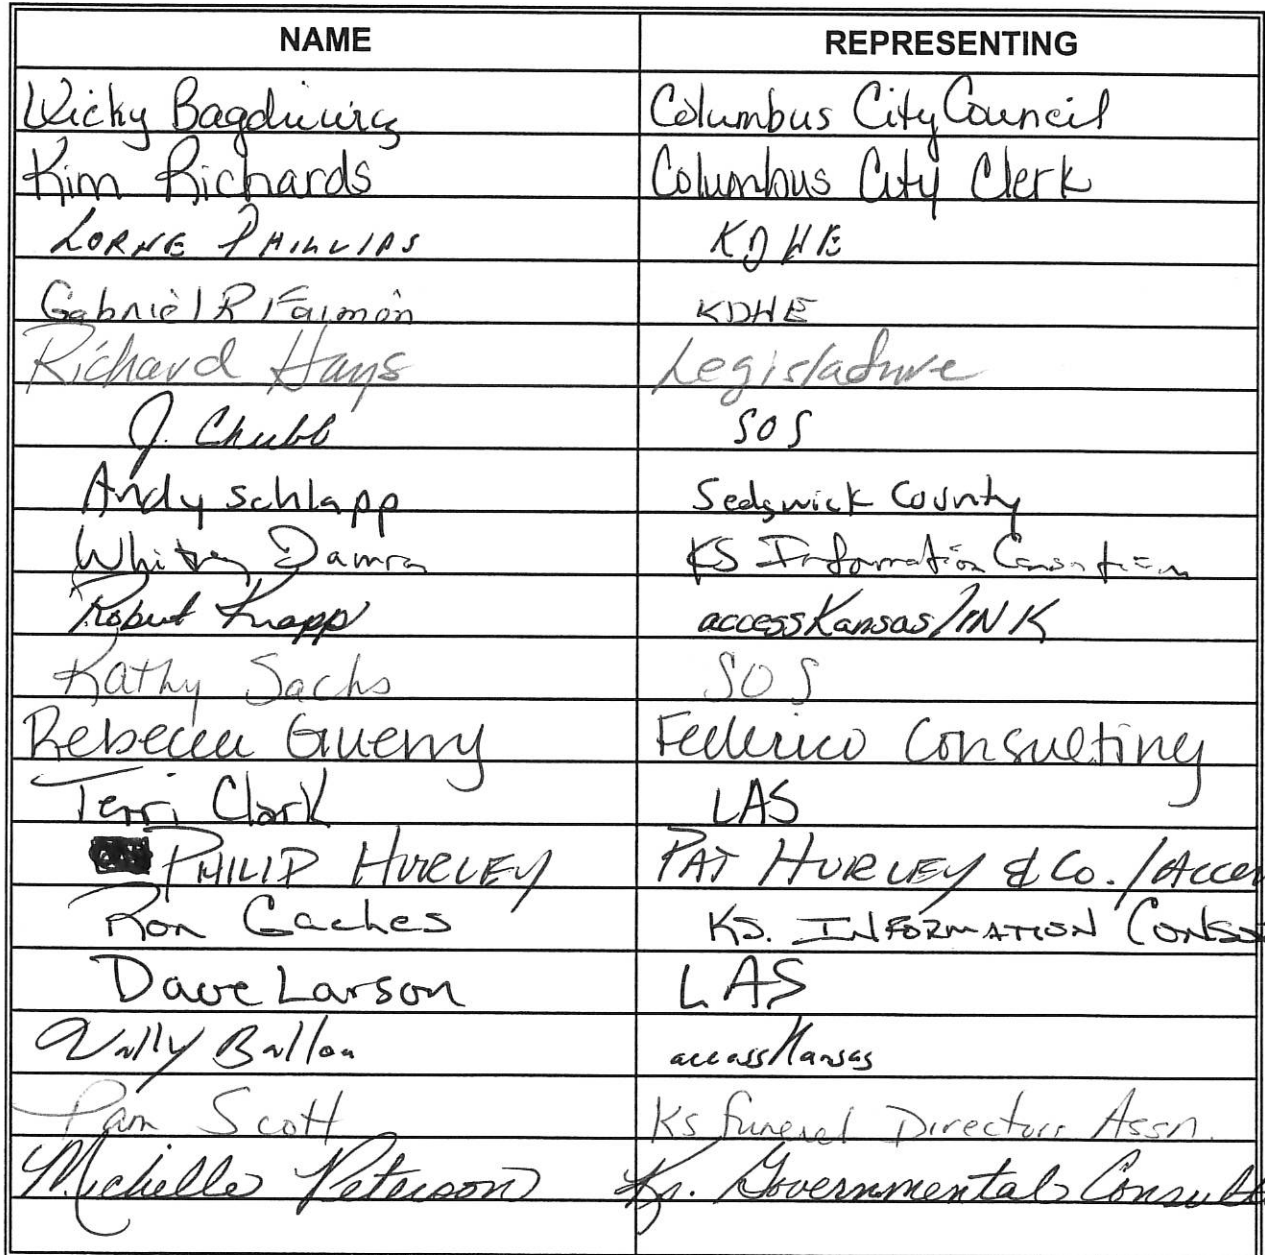 NAME REPRESENTING
Vicky Columbus City Council
Kim Richards Columbus City Clerk
LORNE PHILLIPS KDHE
Gabriel R Faimon KDHE
Richard Hays Legislature
J. Chubb SOS
Andy Schlapp Sedgwick County
Whitney Damron KS Information Consortium
Robert Knapp accessKansas/INK
Kathy Sachs SOS
Rebecca Guerry Federico Consulting
Terri Clark LAS
PHILIP HURLEY PAT HURLEY & Co. /Acce
Ron Gaches KS. INFORMATION Conso
Dave Larson LAS
Ballou accessKansas
Pam Scott Ks Funeral Directors Assn.
Michelle Peterson Ks. Governmental Consult